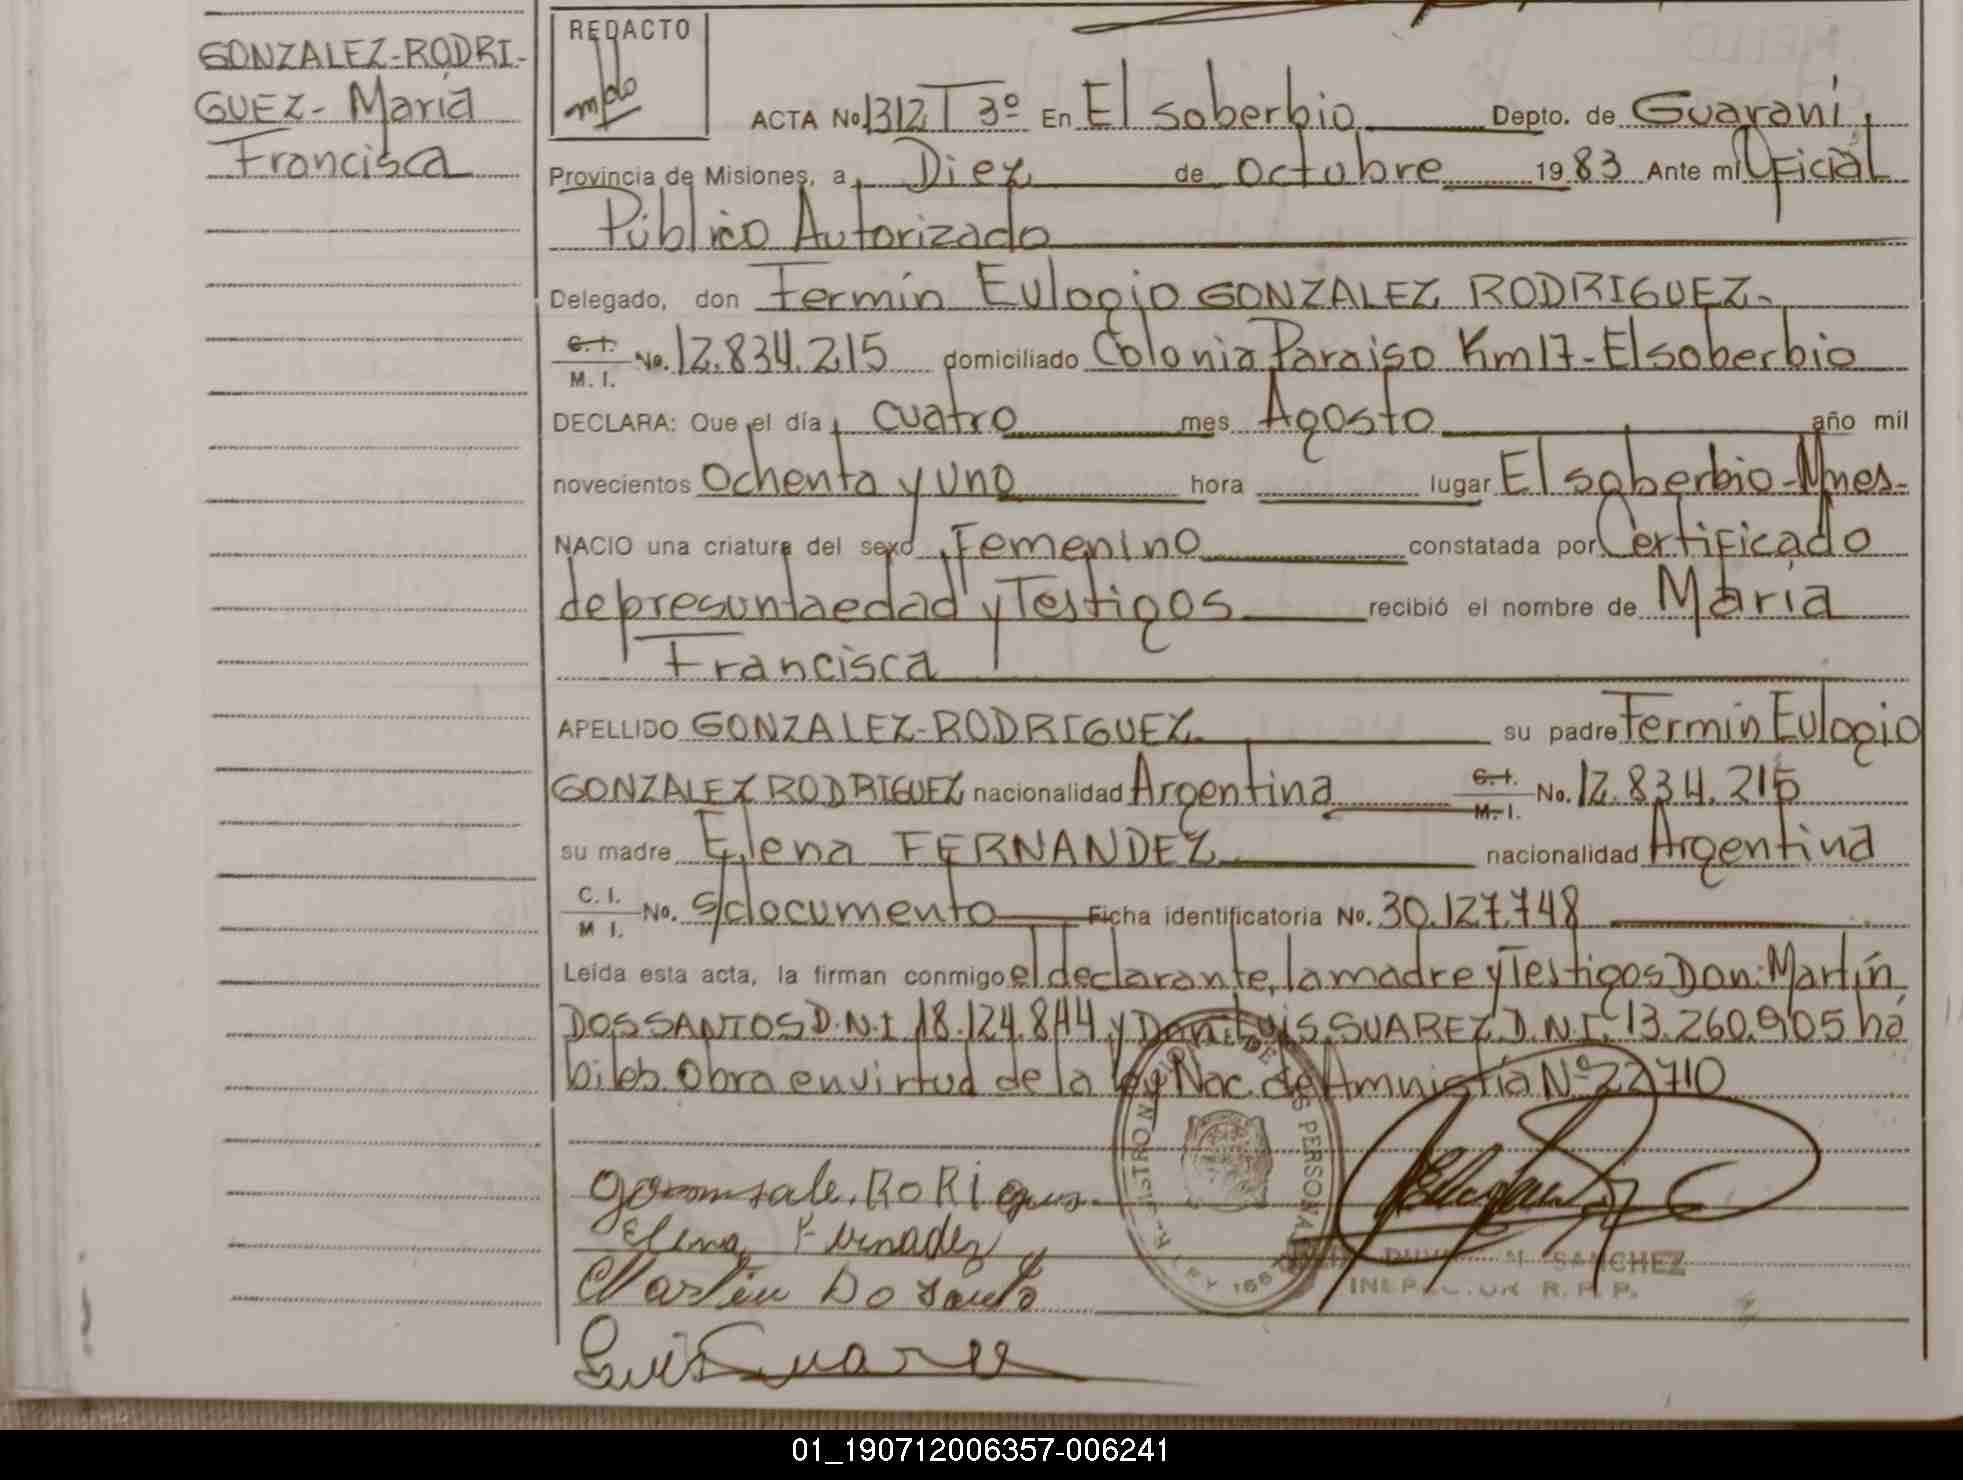 GONZALEZ-RODRI-
GUEZ- María
Francisca
REDACTO
ACTA No 1312 T 3º En El soberbio Depto. de Guaraní,
Provincia de Misiones, a Diez de octubre 1983 Ante mí Oficial
Público Autorizado
Delegado, don Fermín Eulogio GONZALEZ RODRIGUEZ-
C.I. / M. I. No. 12.834.215 domiciliado Colonia Paraiso Km17-El soberbio
DECLARA: Que el día cuatro mes Agosto año mil
novecientos ochenta y uno hora lugar El soberbio-Mnes-
NACIO una criatura del sexo Femenino constatada por Certificado
de presunta edad y Testigos recibió el nombre de María
Francisca
APELLIDO GONZALEZ-RODRIGUEZ su padre Fermín Eulogio
GONZALEZ RODRIGUEZ nacionalidad Argentina C.I. / M.I. No. 12.834.215
su madre Elena FERNANDEZ nacionalidad Argentina
C. I. / M I. No. s/documento Ficha identificatoria No. 30.127.748
Leída esta acta, la firman conmigo el declarante, la madre y Testigos Don: Martín
DOS SANTOS D.N.I. 18.124.844 y Don: Luis SUAREZ D.N.I. 13.260.905 há
biles Obra en virtud de la Ley Nac. de Amnistía Nº 22710
Elena
Martin Do Santo
Luis Suarez
SANCHEZ
R. P. P.
01_190712006357-006241